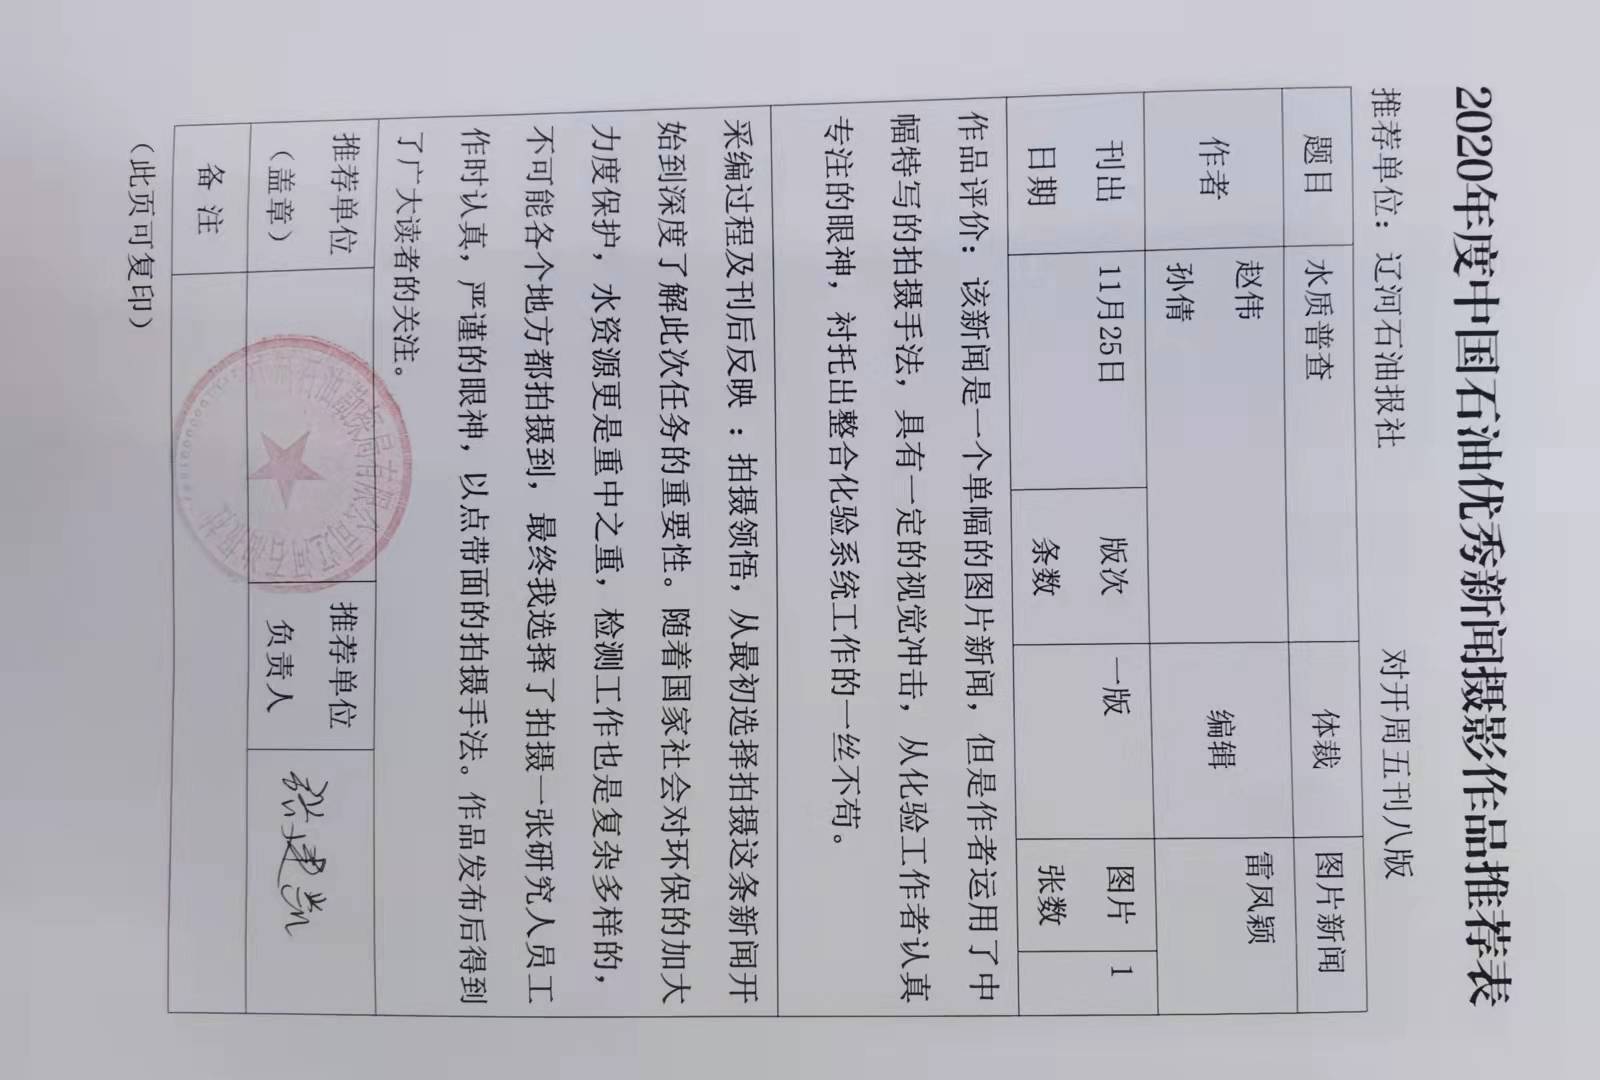 2020年度中国石油优秀新闻摄影作品推荐表
推荐单位：辽河石油报社 对开周五刊八版
题目 水质普查 体裁 图片新闻
作者 赵伟 孙倩 编辑 雷凤颖
刊出日期 11月25日 版次条数 一版 图片张数 1
作品评价：该新闻是一个单幅的图片新闻，但是作者运用了中
幅特写的拍摄手法，具有一定的视觉冲击，从化验工作者认真
专注的眼神，衬托出整合化验系统工作的一丝不苟。
采编过程及刊后反映：拍摄领悟，从最初选择拍摄这条新闻开
始到深度了解此次任务的重要性。随着国家社会对环保的加大
力度保护，水资源更是重中之重，检测工作也是复杂多样的，
不可能各个地方都拍摄到，最终我选择了拍摄一张研究人员工
作时认真，严谨的眼神，以点带面的拍摄手法。作品发布后得到
了广大读者的关注。
推荐单位（盖章） 石油勘探局有限公司 推荐单位负责人
备注
（此页可复印）